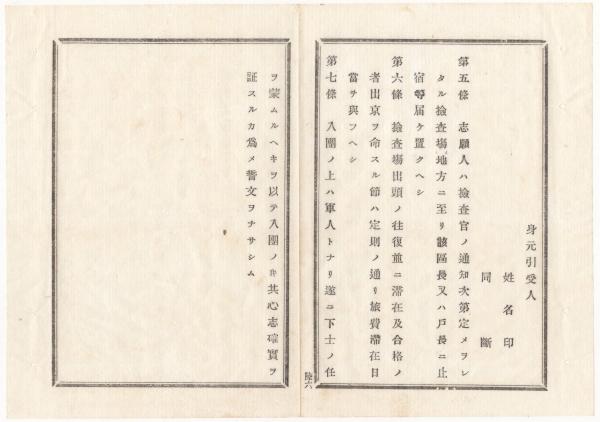 身元引受人
姓名印
同断
第五條 志願人ハ撿査官ノ通知次第定メヲレ
タル撿査塲地方ニ至リ該區長又ハ戸長ニ止
宿等届ケ置クヘシ
第六條 撿査塲出頭ノ往復並ニ滞在及合格ノ
者出京ヲ命スル節ハ定則ノ通リ旅費滞在日
當ヲ與フヘシ
第七條 入團ノ上ハ軍人トナリ遂ニ下士ノ任
陸六
ヲ蒙ムルヘキヲ以テ入團ノ其心志確實ヲ
証スルカ爲メ誓文ヲナサシム